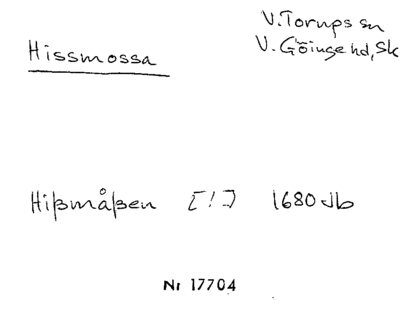 V. Torups sn
Hissmossa
V. Göinge hd, Sk
Hißmåßen [!] 1680 Jb
Nr 17704